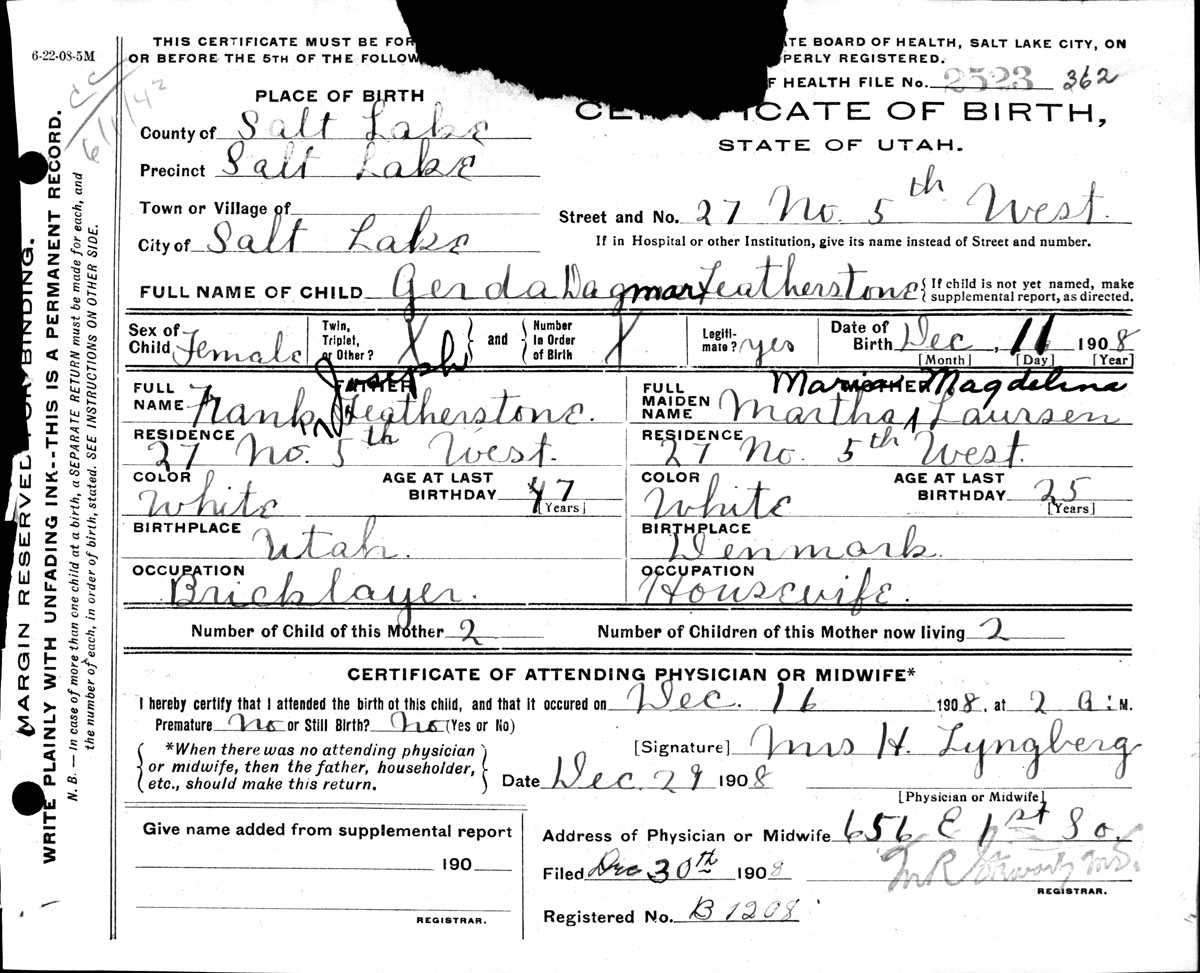 6-22-08-5M
THIS CERTIFICATE MUST BE FOR TE BOARD OF HEALTH, SALT LAKE CITY, ON
OR BEFORE THE 5TH OF THE FOLLOW PERLY REGISTERED.
F HEALTH FILE No. 2523 362
CC
6/1/42
PLACE OF BIRTH
CERTIFICATE OF BIRTH,
STATE OF UTAH.
County of Salt Lake
Precinct Salt Lake
Town or Village of
Street and No. 27 No. 5th West.
City of Salt Lake
If in Hospital or other Institution, give its name instead of Street and number.
FULL NAME OF CHILD Gerda Dagmar Featherstone { If child is not yet named, make supplemental report, as directed.
Sex of Child Female Twin, Triplet, or Other? X and Number In Order of Birth X Legiti-mate? yes Date of Birth Dec, 11 1908
[Month] [Day] [Year]
FATHER Joseph
FULL NAME Frank Featherstone.
MOTHER Maria Magdelina
FULL MAIDEN NAME Martha Laursen
RESIDENCE 27 No. 5th West.
RESIDENCE 27 No. 5th West.
COLOR White AGE AT LAST BIRTHDAY 47 [Years]
COLOR White AGE AT LAST BIRTHDAY 25 [Years]
BIRTHPLACE Utah.
BIRTHPLACE Denmark.
OCCUPATION Bricklayer.
OCCUPATION Housewife.
Number of Child of this Mother 2 Number of Children of this Mother now living 2
CERTIFICATE OF ATTENDING PHYSICIAN OR MIDWIFE*
I hereby certify that I attended the birth of this child, and that it occured on Dec. 16 1908, at 2 A: M.
Premature No or Still Birth? No (Yes or No)
*When there was no attending physician
or midwife, then the father, householder,
etc., should make this return.
[Signature] Mrs H. Lyngberg
Date Dec. 29 1908
[Physician or Midwife]
Give name added from supplemental report
190
REGISTRAR.
Address of Physician or Midwife 656 E 1st So.
Filed Dec 30th 1908
REGISTRAR.
Registered No. B 1208
MARGIN RESERVED FOR BINDING.
WRITE PLAINLY WITH UNFADING INK--THIS IS A PERMANENT RECORD.
N. B. — In case of more than one child at a birth, a SEPARATE RETURN must be made for each, and
the number of each, in order of birth, stated. SEE INSTRUCTIONS ON OTHER SIDE.